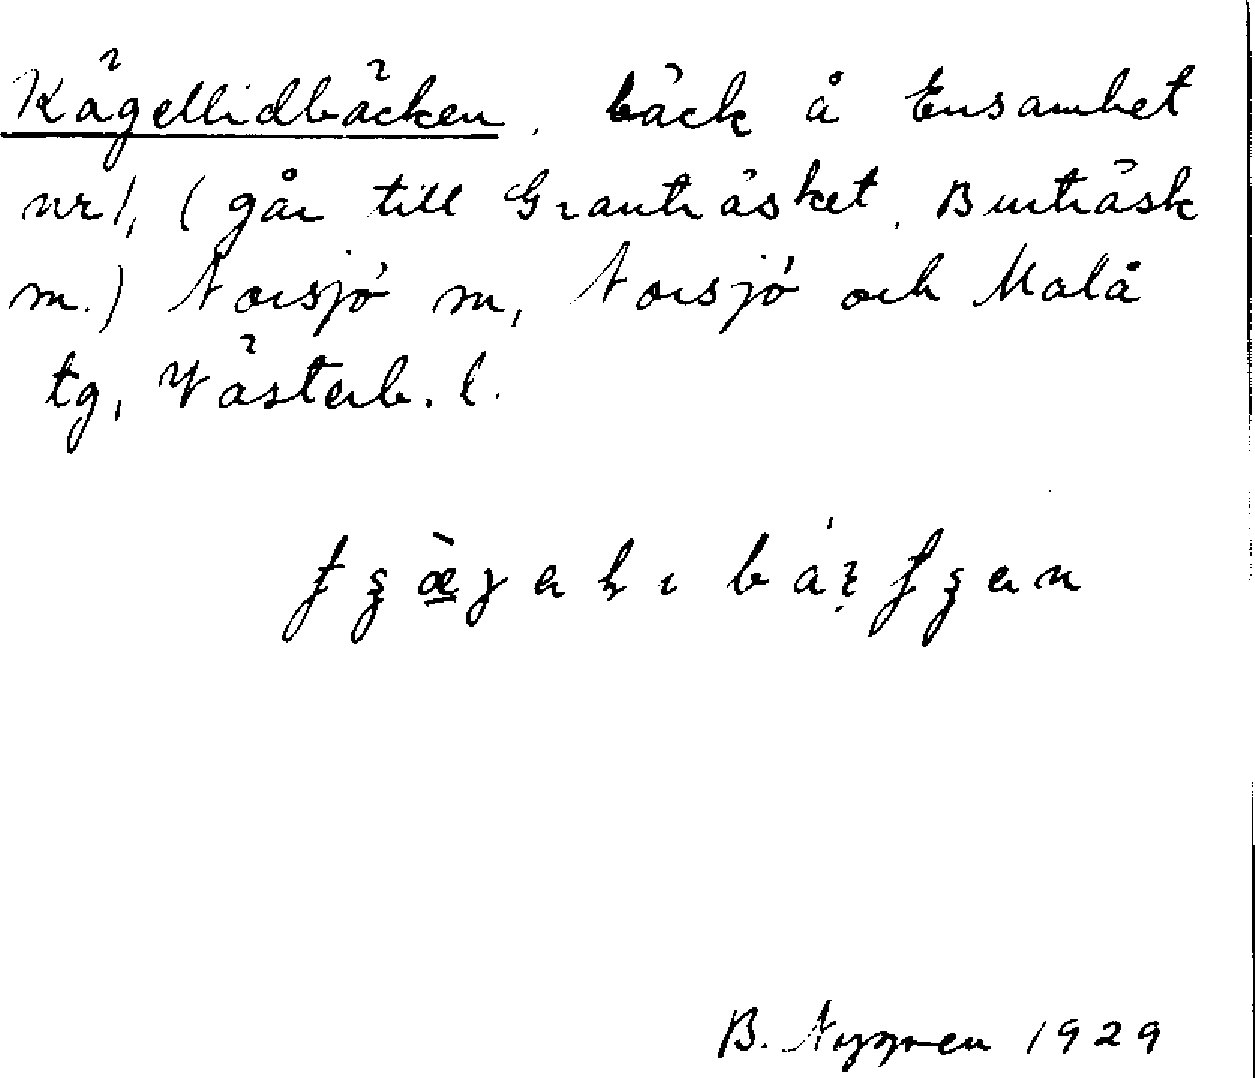 Kägellidbäcken, bäck å Ensamhet
nr 1, (går till Granträsket, Burträsk
m.) Norsjö m, Norsjö och Malå
tg, Västerb. l.
B. Nygren 1929